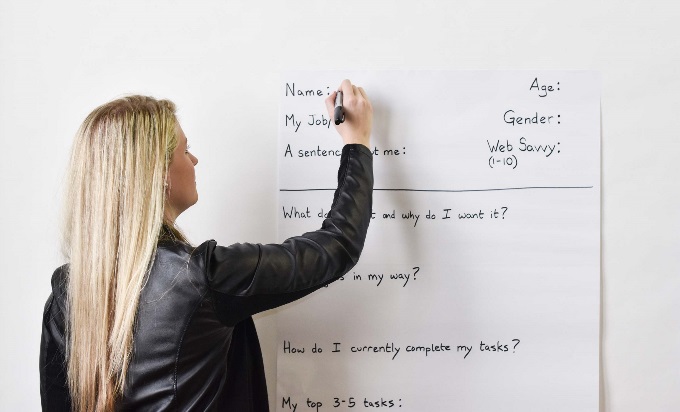 Name: Age:
My Job Gender:
A sentenc t me: Web Savvy:
(1-10)
What do t and why do I want it?
s in my way?
How do I currently complete my tasks?
My top 3-5 tasks: